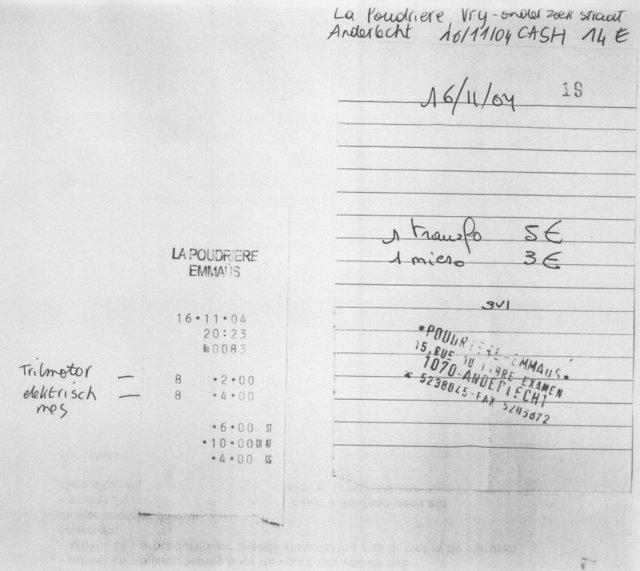 La Poudriere, Vry-onderzoek straat
Anderlecht 16/11/04 CASH 14 €
16/11/04 1S
1 transfo 5€
1 micro 3€
LA POUDRIERE
EMMAÜS
16•11•04
20:23
№0083
Trilmotor — 8 •2•00
elektrisch — 8 •4•00
mes
•6•00 ST
•10•00 CA AT
•4•00 CG
•POUDRIERE-EMMAUS•
15, RUE DU LIBRE EXAMEN
1070-ANDERLECHT
5238045-FAX